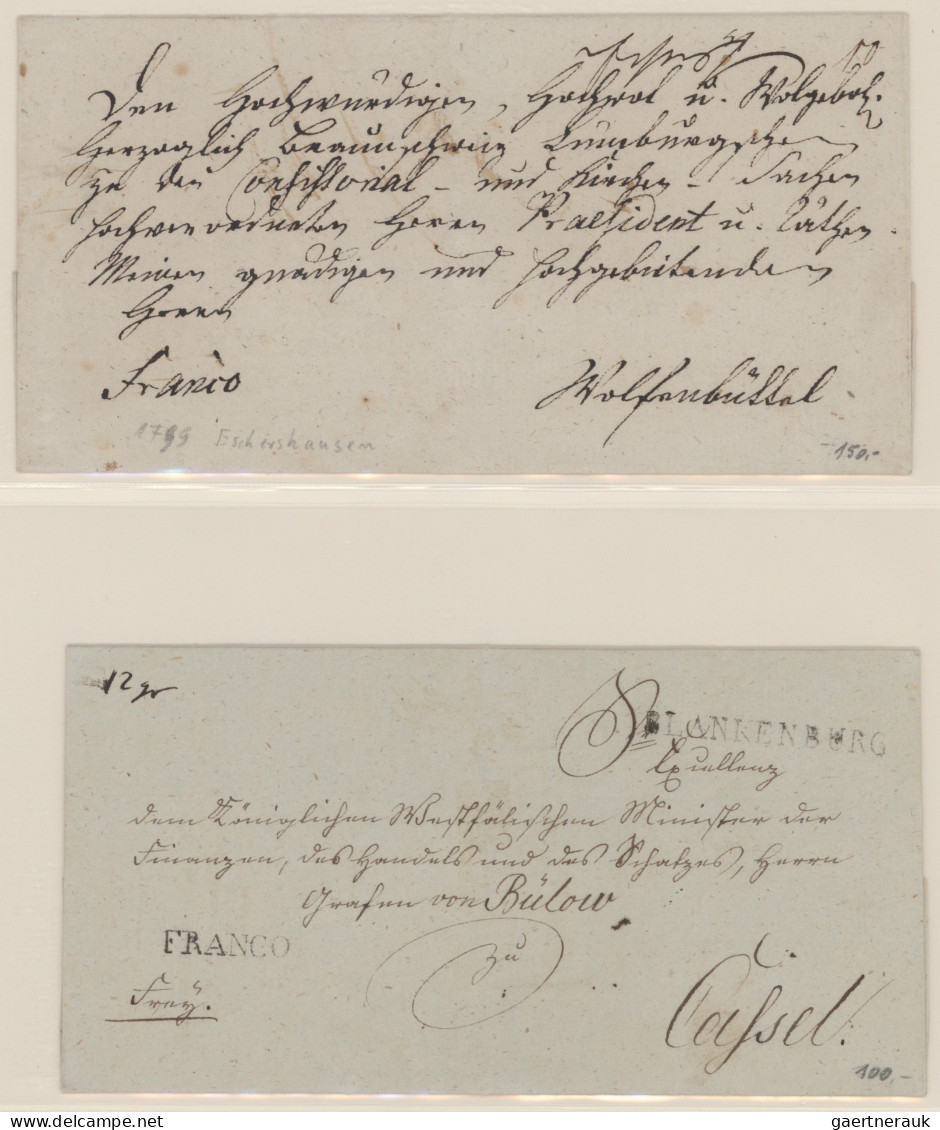 Den Hochwürdigen, Hochwol u. Wolgeboh.
Herzoglich Braunschweig Lüneburgschen
zu den Consistorial - und Kirchen - Sachen
hochverordneten Herren Praesident u. Räthen.
Meinen gnädigen und hochgebietenden
Herren
Franco
Wolfenbüttel
1799 Eschershausen
150,-
12 gr
BLANKENBURG
Excellenz
dem Königlichen Westfälischen Minister der
Finanzen, des Handels und des Schatzes, Herrn
Grafen von Bülow
FRANCO
zu
Frey.
Cassel.
100,-
gaertnerauk